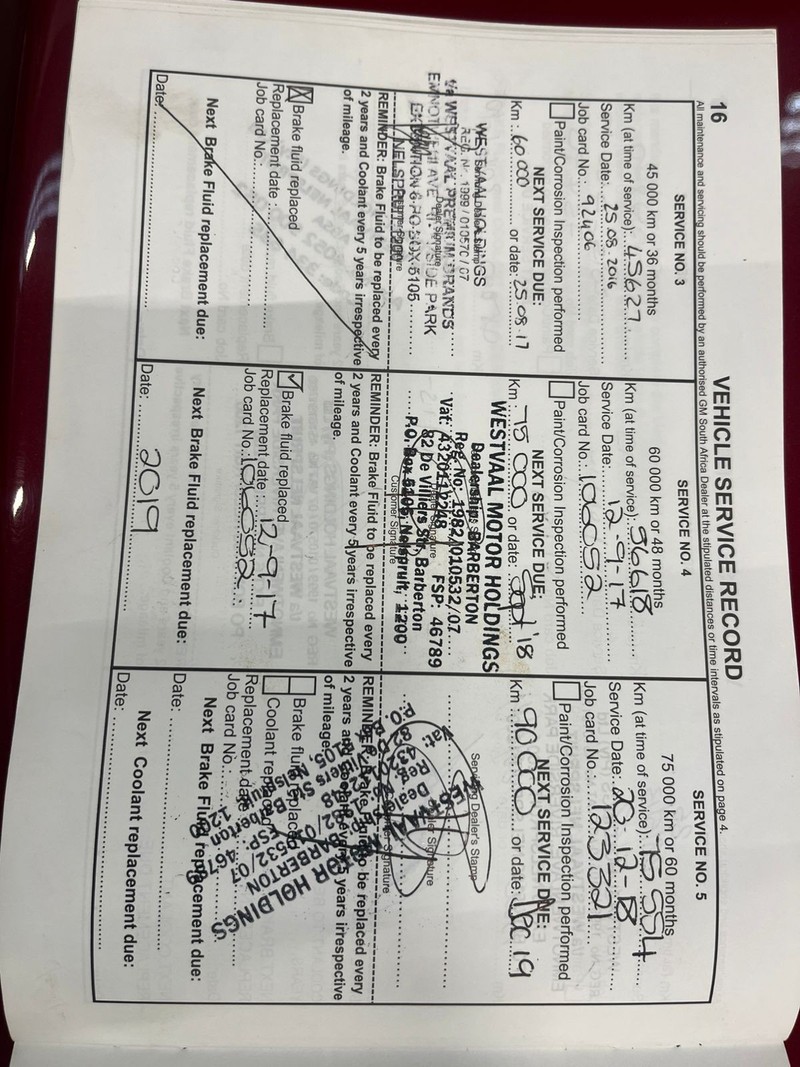 16
VEHICLE SERVICE RECORD
All maintenance and servicing should be performed by an authorised GM South Africa Dealer at the stipulated distances or time intervals as stipulated on page 4.
SERVICE NO. 3
45 000 km or 36 months
Km (at time of service): 45627
Service Date: 25.08.2016
Job card No.: 92406
Paint/Corrosion Inspection performed
NEXT SERVICE DUE:
Km: 60 000 or date: 25.08.17
WESTVAAL HOLDINGS
REG. Nr. 1999/010570/07
t/a WESTVAAL PREMIUM BRANDS
Dealer Signature
NELSPRUIT 1200
Customer Signature
REMINDER: Brake Fluid to be replaced every
2 years and Coolant every 5 years irrespective
of mileage.
Brake fluid replaced
Replacement date:
Job card No.:
Next Brake Fluid replacement due:
Date:
SERVICE NO. 4
60 000 km or 48 months
Km (at time of service): 56618
Service Date: 12-9-17
Job card No.: 106052
Paint/Corrosion Inspection performed
NEXT SERVICE DUE:
Km 75 000 or date: Sept '18
WESTVAAL MOTOR HOLDINGS
Dealership: BARBERTON
Reg No: 1982/010532/07
Vat: 4320112248 FSP: 46789
82 De Villiers Str, Barberton
P.O. Box 5105, Nelspruit, 1200
Customer Signature
REMINDER: Brake Fluid to be replaced every
2 years and Coolant every 5 years irrespective
of mileage.
Brake fluid replaced
Replacement date: 12-9-17
Job card No.: 106052
Next Brake Fluid replacement due:
Date: 2019
SERVICE NO. 5
75 000 km or 60 months
Km (at time of service): 75554
Service Date: 20-12-18
Job card No.: 123321
Paint/Corrosion Inspection performed
NEXT SERVICE DUE:
Km: 90000 or date: Dec 19
Dealer's Stamp
Dealer Signature
Customer Signature
REMINDER: Brake Fluid to be replaced every
2 years and Coolant every 5 years irrespective
of mileage.
Brake fluid replaced
Coolant replaced
Replacement date
Job card No.:
Next Brake Fluid replacement due:
Date:
Next Coolant replacement due:
Date: